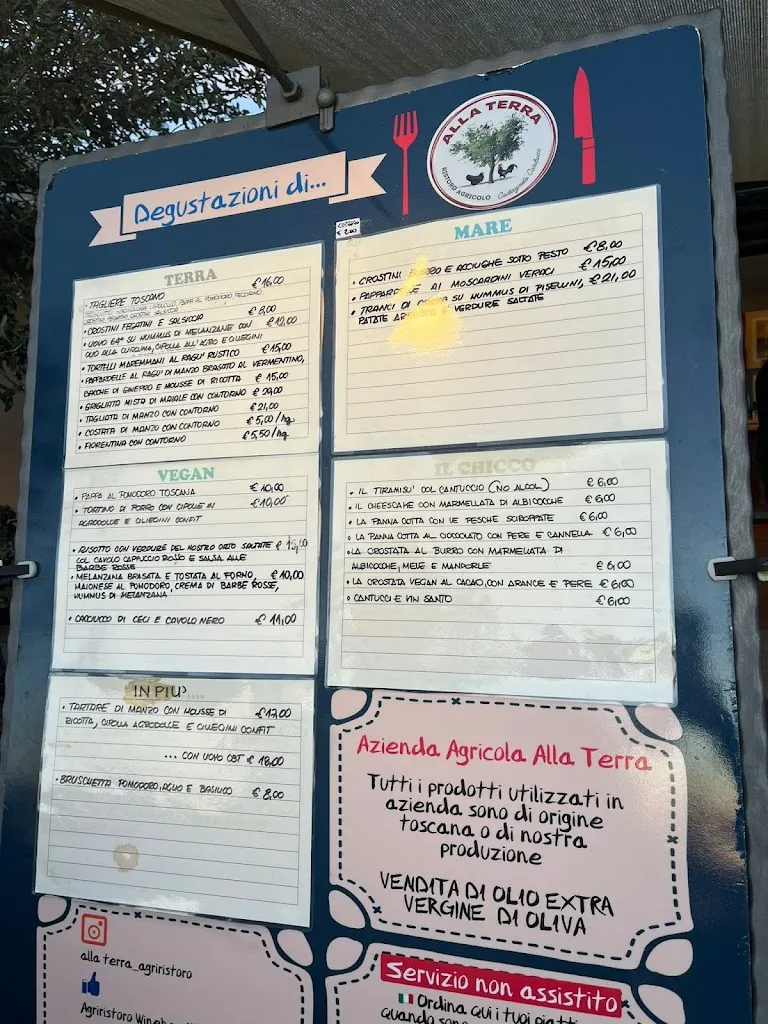 ALLA TERRA
RISTORO AGRICOLO Castagneto Carducci
Degustazioni di...
COPERTO
€ 2,00
TERRA
• TAGLIERE TOSCANO €16,00
CROSTINI FEGATINI, CROSTINI SALSICCIA
• CROSTINI FEGATINI E SALSICCIA €8,00
• UOVO 64° SU HUMMUS DI MELANZANE CON €12,00
OLIO ALLA CURCUMA, CIPOLLA ALL'AGRO E CILIEGINI
• TORTELLI MAREMMANI AL RAGU' RUSTICO €15,00
• PAPPARDELLE AL RAGU' DI MANZO BRASATO AL VERMENTINO,
BACCHE DI GINEPRO E MOUSSE DI RICOTTA €15,00
• GRIGLIATA MISTA DI MAIALE CON CONTORNO €20,00
• TAGLIATA DI MANZO CON CONTORNO €21,00
• COSTATA DI MANZO CON CONTORNO €5,00/hg
• FIORENTINA CON CONTORNO €5,50/hg
MARE
• CROSTINI BURRO E ACCIUGHE SOTTO PESTO €8,00
• PAPPARDELLE AI MOSCARDINI VERACI €15,00
• TRANCI DI SU HUMMUS DI PISELLINI, €21,00
PATATE E VERDURE SALTATE
VEGAN
• PAPPA AL POMODORO TOSCANA €10,00
• TORTINO DI PORRO CON CIPOLLE IN €10,00
AGRODOLCE E CILIEGINI CONFIT
• RISOTTO CON VERDURE DEL NOSTRO ORTO SALTATE €15,00
COL CAVOLO CAPPUCCIO ROSSO E SALSA ALLE
BARBE ROSSE
• MELANZANA BRASATA E TOSTATA AL FORNO, €10,00
MAIONESE AL POMODORO, CREMA DI BARBE ROSSE,
HUMMUS DI MELANZANA
• CACCIUCCO DI CECI E CAVOLO NERO €11,00
IL CHICCO
• IL TIRAMISU' COL CANTUCCIO (NO ALCOL) €6,00
• IL CHEESCAKE CON MARMELLATA DI ALBICOCCHE €6,00
• LA PANNA COTTA CON LE PESCHE SCIROPPATE €6,00
• LA PANNA COTTA AL CIOCCOLATO CON PERE E CANNELLA €6,00
• LA CROSTATA AL BURRO CON MARMELLATA DI
ALBICOCCHE, MELE E MANDORLE €6,00
• LA CROSTATA VEGAN AL CACAO, CON ARANCE E PERE €6,00
• CANTUCCI E VIN SANTO €6,00
IN PIU'....
• TARTARE DI MANZO CON MOUSSE DI €17,00
RICOTTA, CIPOLLA AGRODOLCE E CILIEGINI CONFIT
... CON UOVO CBT €18,00
• BRUSCHETTA POMODORO, AGLIO E BASILICO €8,00
Azienda Agricola Alla Terra
Tutti i prodotti utilizzati in
azienda sono di origine
toscana o di nostra
produzione
VENDITA DI OLIO EXTRA
VERGINE DI OLIVA
alla terra_agriristoro
Agriristoro
Servizio non assistito
Ordina qui i tuoi piatti